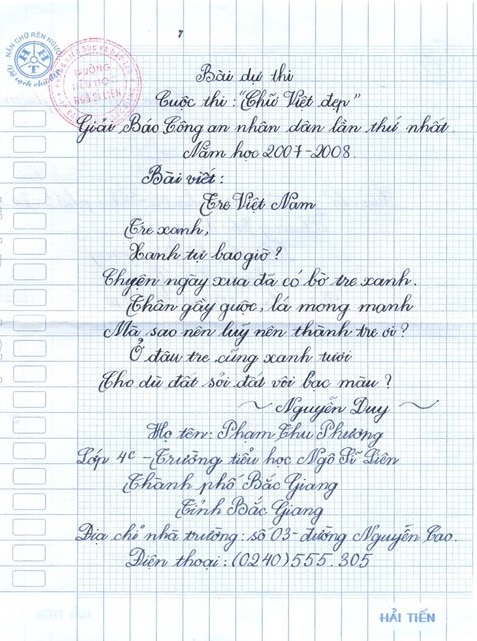 NẮN CHỮ RÈN NGƯỜI
HHT
Bài dự thi
Cuộc thi: "Chữ Việt đẹp"
Giải Báo Công an nhân dân lần thứ nhất.
Năm học 2007-2008.
Bài viết:
Tre Việt Nam
Tre xanh,
Xanh tự bao giờ?
Chuyện ngày xưa đã có bờ tre xanh.
Thân gầy guộc, lá mong manh
Mà sao nên luỹ nên thành tre ơi?
Ở đâu tre cũng xanh tươi
Cho dù đất sỏi đất vôi bạc màu?
~ Nguyễn Duy ~
Họ tên: Phạm Thu Phương
Lớp 4c - Trường tiểu học Ngô Sĩ Liên
Thành phố Bắc Giang
Tỉnh Bắc Giang
Địa chỉ nhà trường: số 03- đường Nguyễn Cao.
Điện thoại: (0240)555.305
HẢI TIẾN